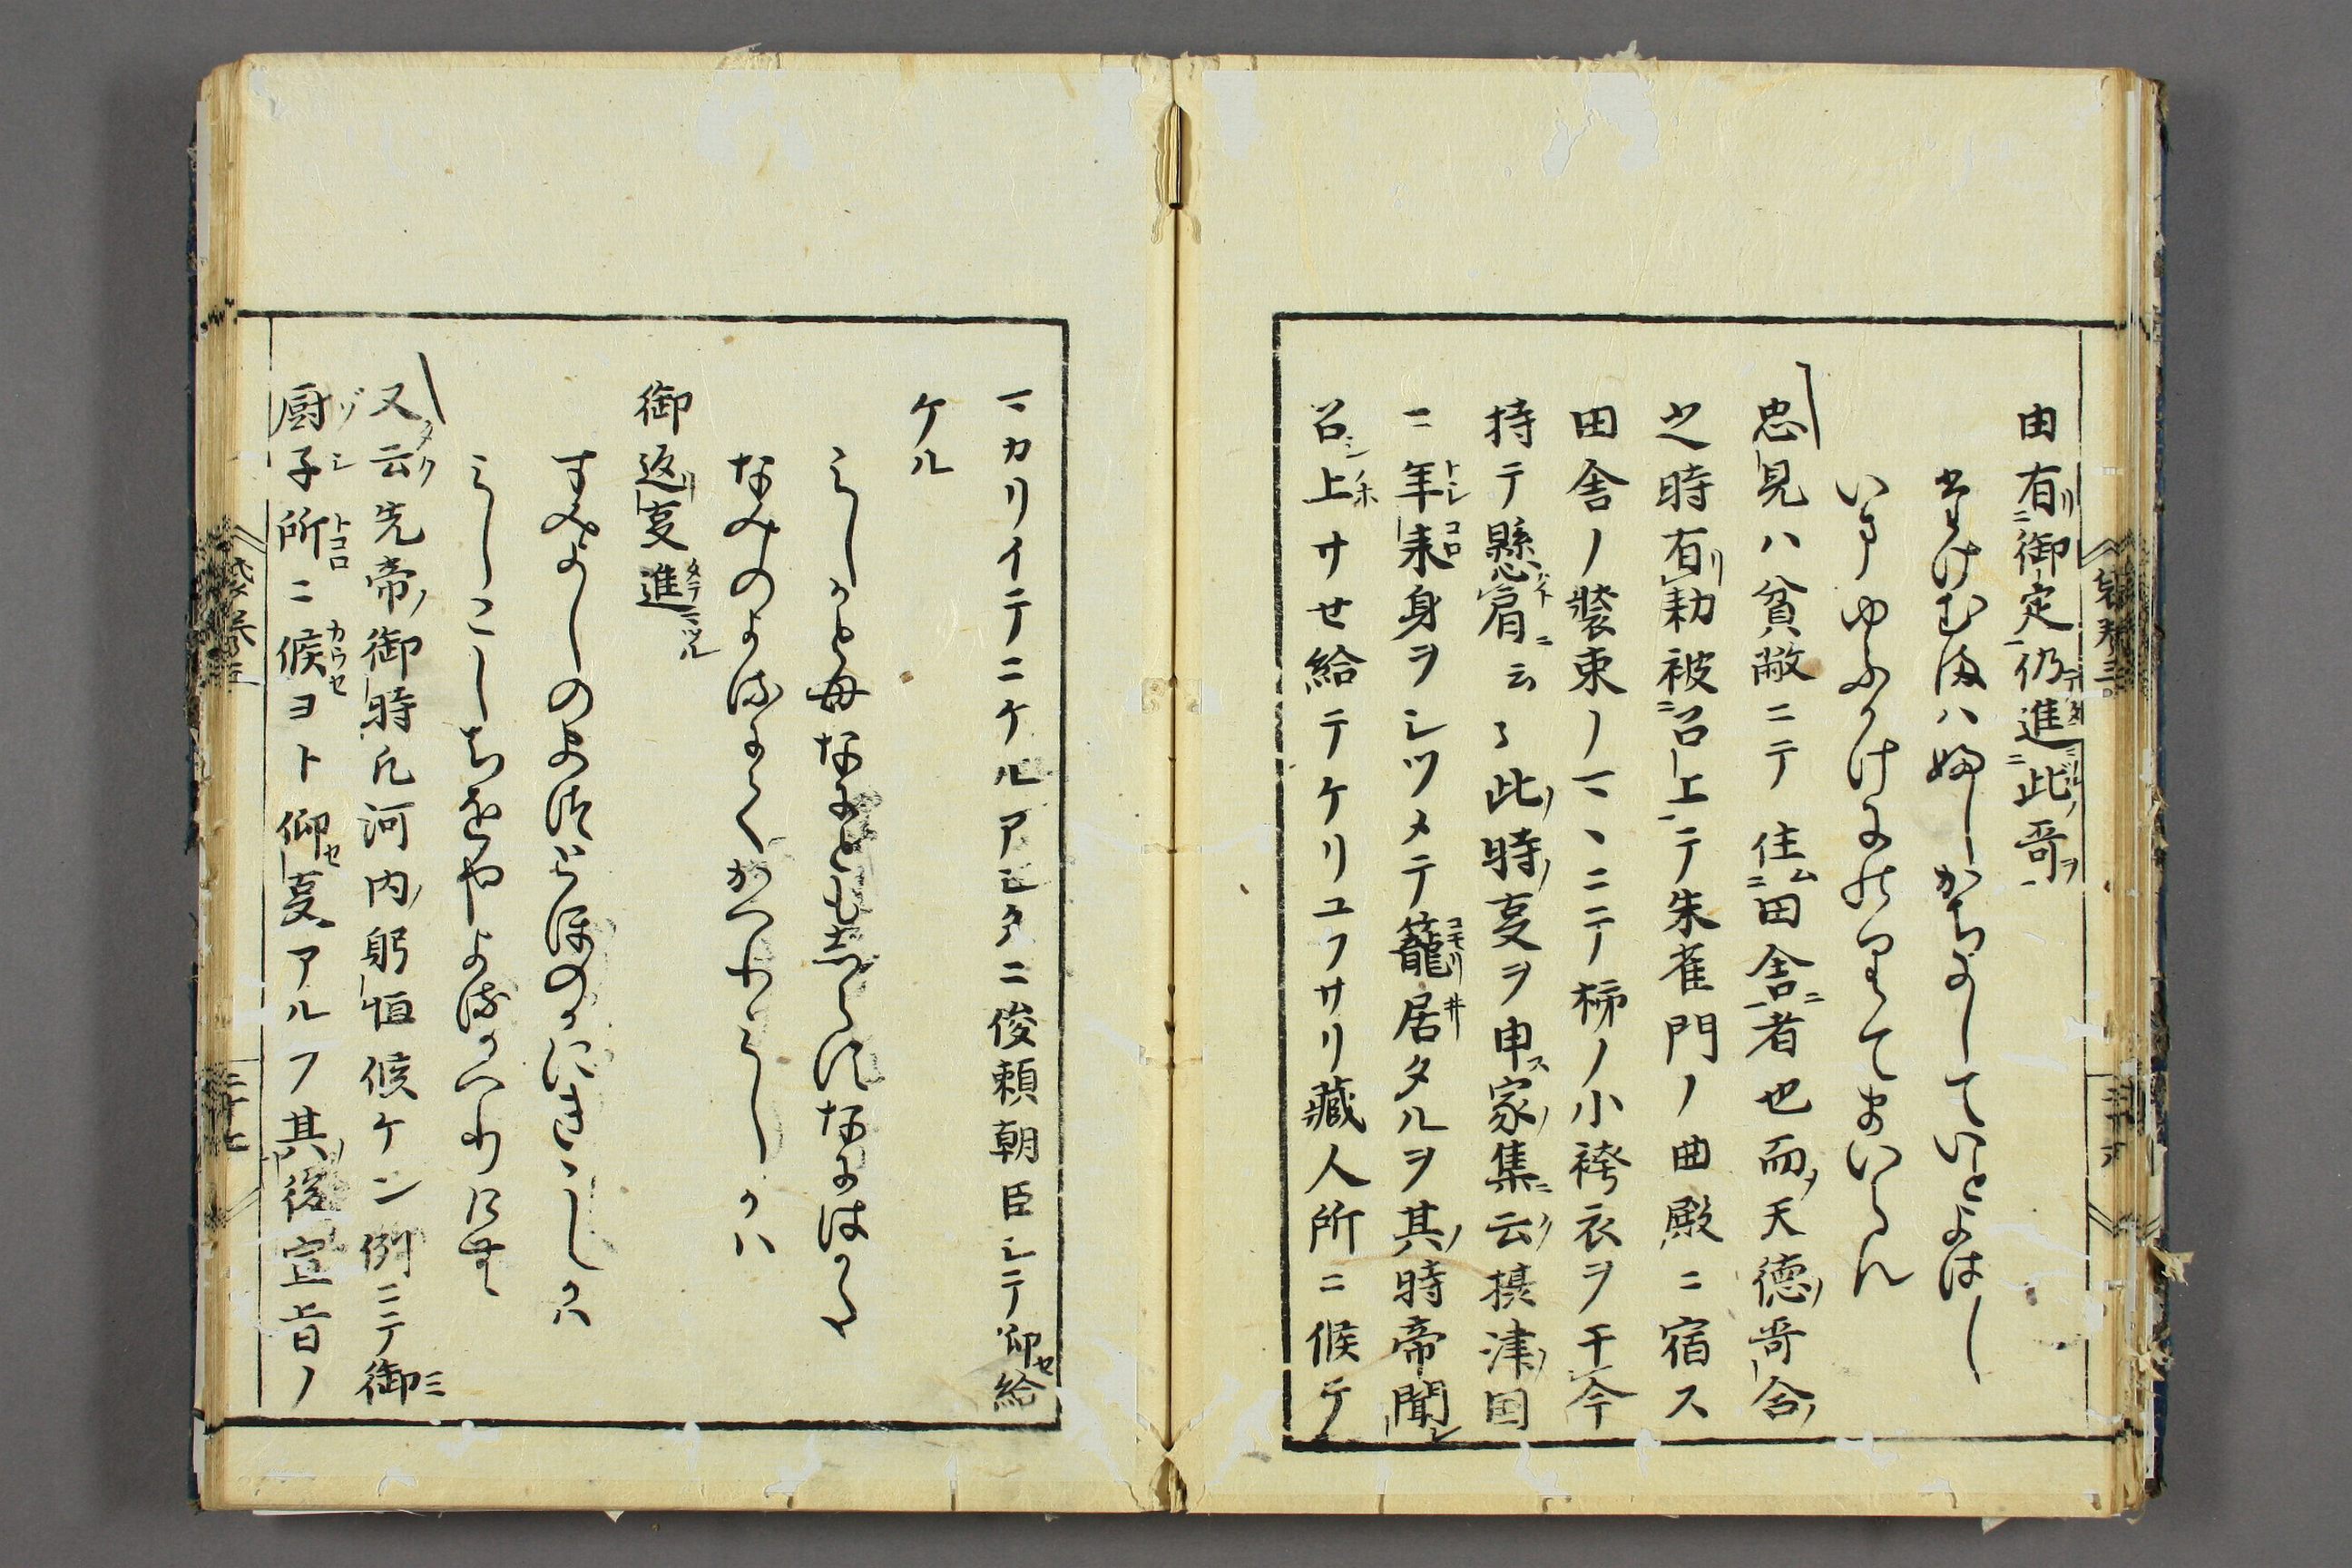 由有御定仍進此哥
たけむまハふしかちにしていとよはし
いまゆふかけにのりてまいらん
忠見ハ貧敝ニテ住田舎者也而天徳哥合
之時有勅被召上テ朱雀門ノ曲殿ニ宿ス
田舎ノ装束ノマヽニテ柿ノ小袴衣ヲ于今
持テ懸肩云々此時㕝ヲ申家集云摂津国
ニ年来身ヲシツメテ籠居タルヲ其時帝聞
召上サせ給テケリユフサリ蔵人所ニ候テ
マカリイテニケルアシタニ俊頼朝臣シテ仰給
ケル
みしかと毎なにとも志らすなにはかた
なみのよるにてかへりにしかハ
御返㕝進
すみよしのまつとほのかにきゝしかハ
よるかへりけむ
又云先帝御時凡河内躬恒候ケン例ニテ御
厨子所ニ候ヨト仰㕝アルフ其後宣旨ノ